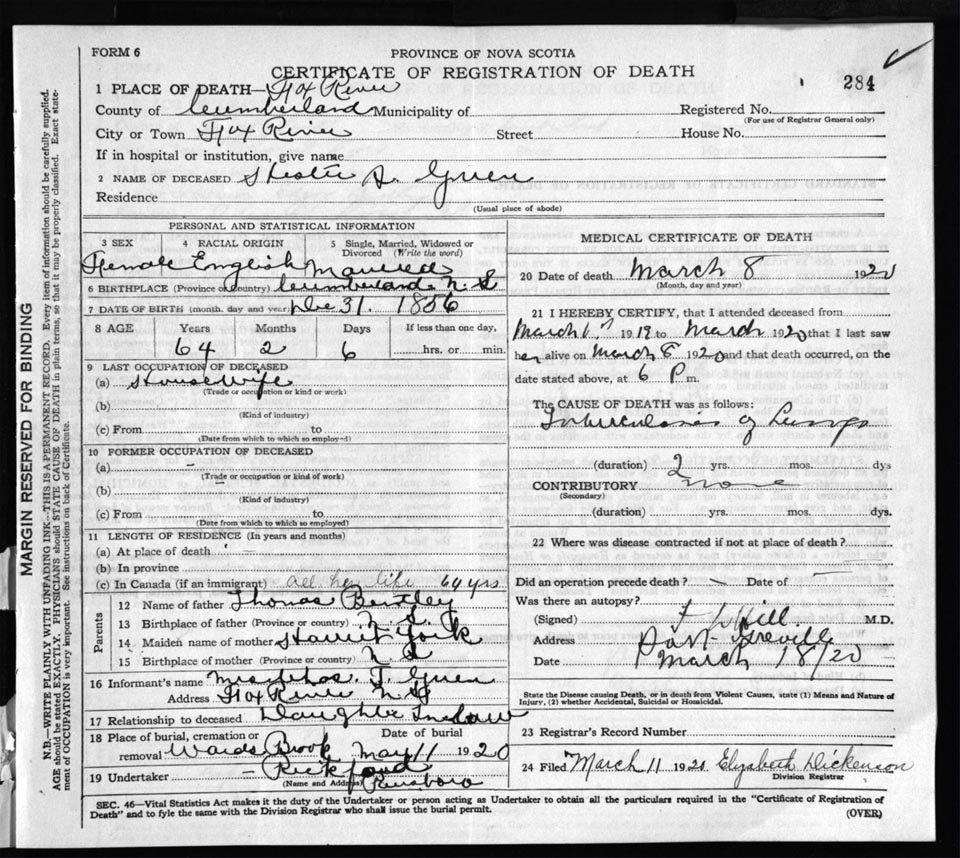 FORM 6
PROVINCE OF NOVA SCOTIA
CERTIFICATE OF REGISTRATION OF DEATH
284
1 PLACE OF DEATH—Fox River
County of Cumberland Municipality of
Registered No.
(For use of Registrar General only)
City or Town Fox River Street House No.
If in hospital or institution, give name
2 NAME OF DECEASED A. Green
Residence
(Usual place of abode)
PERSONAL AND STATISTICAL INFORMATION
3 SEX 4 RACIAL ORIGIN 5 Single, Married, Widowed or Divorced (Write the word)
Female English Married
6 BIRTHPLACE (Province or country) Cumberland N. S
7 DATE OF BIRTH (month, day and year) Dec 31. 1856
8 AGE Years Months Days If less than one day,
64 2 6 hrs. or min.
9 LAST OCCUPATION OF DECEASED
(a) Housewife
(Trade or occupation or kind or work)
(b)
(Kind of industry)
(c) From to
(Date from which to which so employed)
10 FORMER OCCUPATION OF DECEASED
(a) –
(Trade or occupation or kind of work)
(b)
(Kind of industry)
(c) From to
(Date from which to which so employed)
11 LENGTH OF RESIDENCE (In years and months)
(a) At place of death –
(b) In province
(c) In Canada (if an immigrant) all her life 64 yrs
Parents
12 Name of father Thomas Bentley
13 Birthplace of father (Province or country) N. S
14 Maiden name of mother Harriet York
15 Birthplace of mother (Province or country) N S
16 Informant's name Mrs Thos. J. Green
Address Fox River N S
17 Relationship to deceased Daughter In law
18 Place of burial, cremation or removal Date of burial
Wards Brook May 11 1920
19 Undertaker – Rickford
(Name and Address) Parrsboro
MEDICAL CERTIFICATE OF DEATH
20 Date of death March 8 1920
(Month, day and year)
21 I HEREBY CERTIFY, that I attended deceased from
March 1919 to March 1920 that I last saw
her alive on March 8 1920 and that death occurred, on the
date stated above, at 6 P m.
The CAUSE OF DEATH was as follows:
Tuberculosis of Lungs
(duration) 2 yrs. mos. dys
CONTRIBUTORY none
(Secondary)
(duration) yrs. mos. dys.
22 Where was disease contracted if not at place of death?
Did an operation precede death? – Date of –
Was there an autopsy?
(Signed) Hill M.D.
Address Port Greville
Date March 18/20
State the Disease causing Death, or in death from Violent Causes, state (1) Means and Nature of
Injury, (2) whether Accidental, Suicidal or Homicidal.
23 Registrar's Record Number
24 Filed March 11 1920 Elizabeth Dickenson
Division Registrar
SEC. 46—Vital Statistics Act makes it the duty of the Undertaker or person acting as Undertaker to obtain all the particulars required in the "Certificate of Registration of
Death" and to fyle the same with the Division Registrar who shall issue the burial permit.
(OVER)
MARGIN RESERVED FOR BINDING
N.B.—WRITE PLAINLY WITH UNFADING INK—THIS IS A PERMANENT RECORD. Every item of information should be carefully supplied.
AGE should be stated EXACTLY. PHYSICIANS should STATE CAUSE OF DEATH in plain terms, so that it may be properly classified. Exact state-
ment of OCCUPATION is very important. See instructions on back of Certificate.